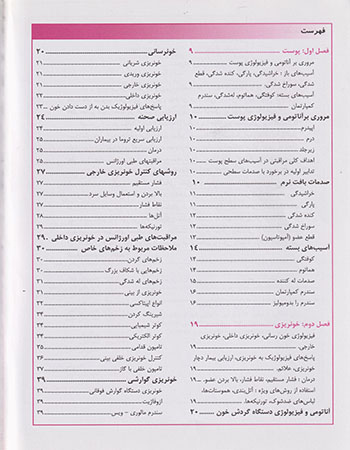 فهرست
فصل اول: پوست ۹
مروری بر آناتومی و فیزیولوژی پوست ۹
آسیب‌های باز : خراشیدگی، پارگی، کنده شدگی، قطع
شدگی، سوراخ شدگی ۹
آسیب‌های بسته: کوفتگی، هماتوم، له‌شدگی، سندرم
کمپارتمان ۹
مروری برآناتومی و فیزیولوژی پوست ۱۰
اپیدرم ۱۰
درم ۱۰
زیرجلد ۱۰
اهداف کلی مراقبتی در آسیب‌های سطح پوست ۱۰
تدابیر اولیه در برخورد با صدمات سطحی ۱۰
صدمات بافت نرم ۱۰
خراشیدگی ۱۰
پارگی ۱۱
کنده شدگی ۱۲
سوراخ شدگی ۱۲
قطع عضو (آمپوتاسیون) ۱۲
آسیب‌های بسته ۱۴
کوفتگی ۱۳
هماتوم ۱۴
صدمات له کننده ۱۵
سندرم کمپارتمان ۱۶
سندرم رابدومیولیز ۱۶
فصل دوم: خونریزی ۱۹
فیزیولوژی خون رسانی، خونریزی داخلی، خونریزی
خارجی ۱۹
پاسخ‌های فیزیولوژیک به خونریزی، ارزیابی بیمار دچار
خونریزی، علائم ۱۹
درمان : فشار مستقیم، نقاط فشار، بالا بردن عضو ۱۹
استفاده از روش‌های ویژه : آتل‌بندی، هموستات‌ها،
لباس‌های ضدشوک، تورنیکه‌ها ۱۹
آناتومی و فیزیولوژی دستگاه گردش خون ۲۰
خونرسانی ۲۰
خونریزی شریانی ۲۱
خونریزی وریدی ۲۱
خونریزی خارجی ۲۱
خونریزی داخلی ۲۲
پاسخ‌های فیزیولوژیک بدن به از دست دادن خون ۲۳
ارزیابی صحنه ۲۴
ارزیابی اولیه ۲۴
ارزیابی سریع تروما در بیماران ۲۴
درمان ۲۵
مراقبتهای طبی اورژانس ۲۵
روشهای کنترل خونریزی خارجی ۲۷
فشار مستقیم ۲۷
بالا بردن و استعمال وسایل سرد ۲۷
نقاط فشار ۲۷
آتل‌ها ۲۸
تورنیکه‌ها ۲۹
مراقبت‌های طبی اورژانس در خونریزی داخلی ۲۹
ملاحظات مربوط به زخم‌های خاص ۳۰
زخم‌های گردن ۳۰
زخم‌هایی با شکاف بزرگ ۳۰
زخم‌های له شدگی ۳۱
خونریزی از بینی ۳۱
انواع اپیستاکسی ۳۲
شیرینگ کردن ۳۴
کوتر شیمیایی ۳۴
کوتر الکتریکی ۳۴
تامپون قدامی ۳۵
کنترل خونریزی خلفی بینی ۳۶
تامپون خلفی با گاز ۳۷
خونریزی گوارشی ۳۹
خونریزی دستگاه گوارش فوقانی ۳۹
ازوفاژیت ۳۹
سندرم مالوری - ویس ۳۹